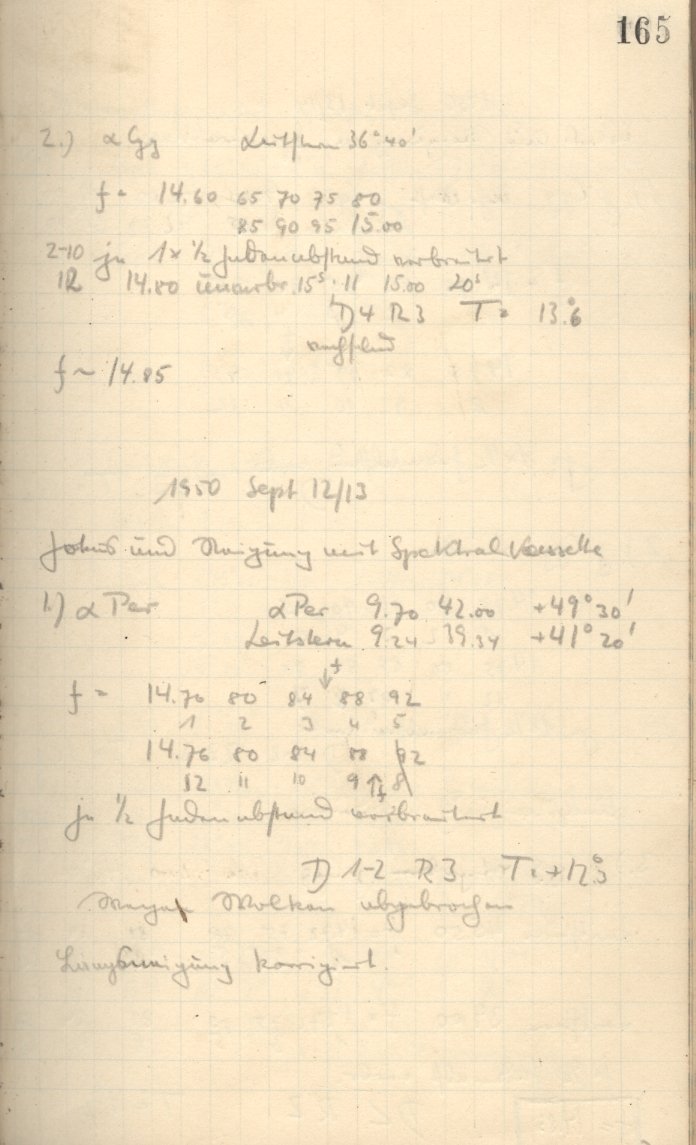 165
2.) α Cyg Leitstern 36° 40'
f = 14.60 65 70 75 80
85 90 95 15.00
2-10 je 1 x 1/2 Fadenabstand verbreitert
12 14.80 unverbr. 15s 11 15.00 20s
D 4 R 3 T = 13°.6
f ~ 14.85
1950 Sept 12/13
Fokus und Neigung mit Spektralkassette
1.) α Per α Per 9.70 42.00 +49° 30'
Leitstern 9.24 39.34 +41° 20'
f = 14.76 80 84 ↓+ 88 92
1 2 3 4 5
14.76 80 84 88 92
12 11 10 9 ↑+ 8
je 1/2 Fadenabstand verbreitert
D 1-2 R 3 T = +12°.3
Wegen Wolken abgebrochen
Längsneigung korrigiert.